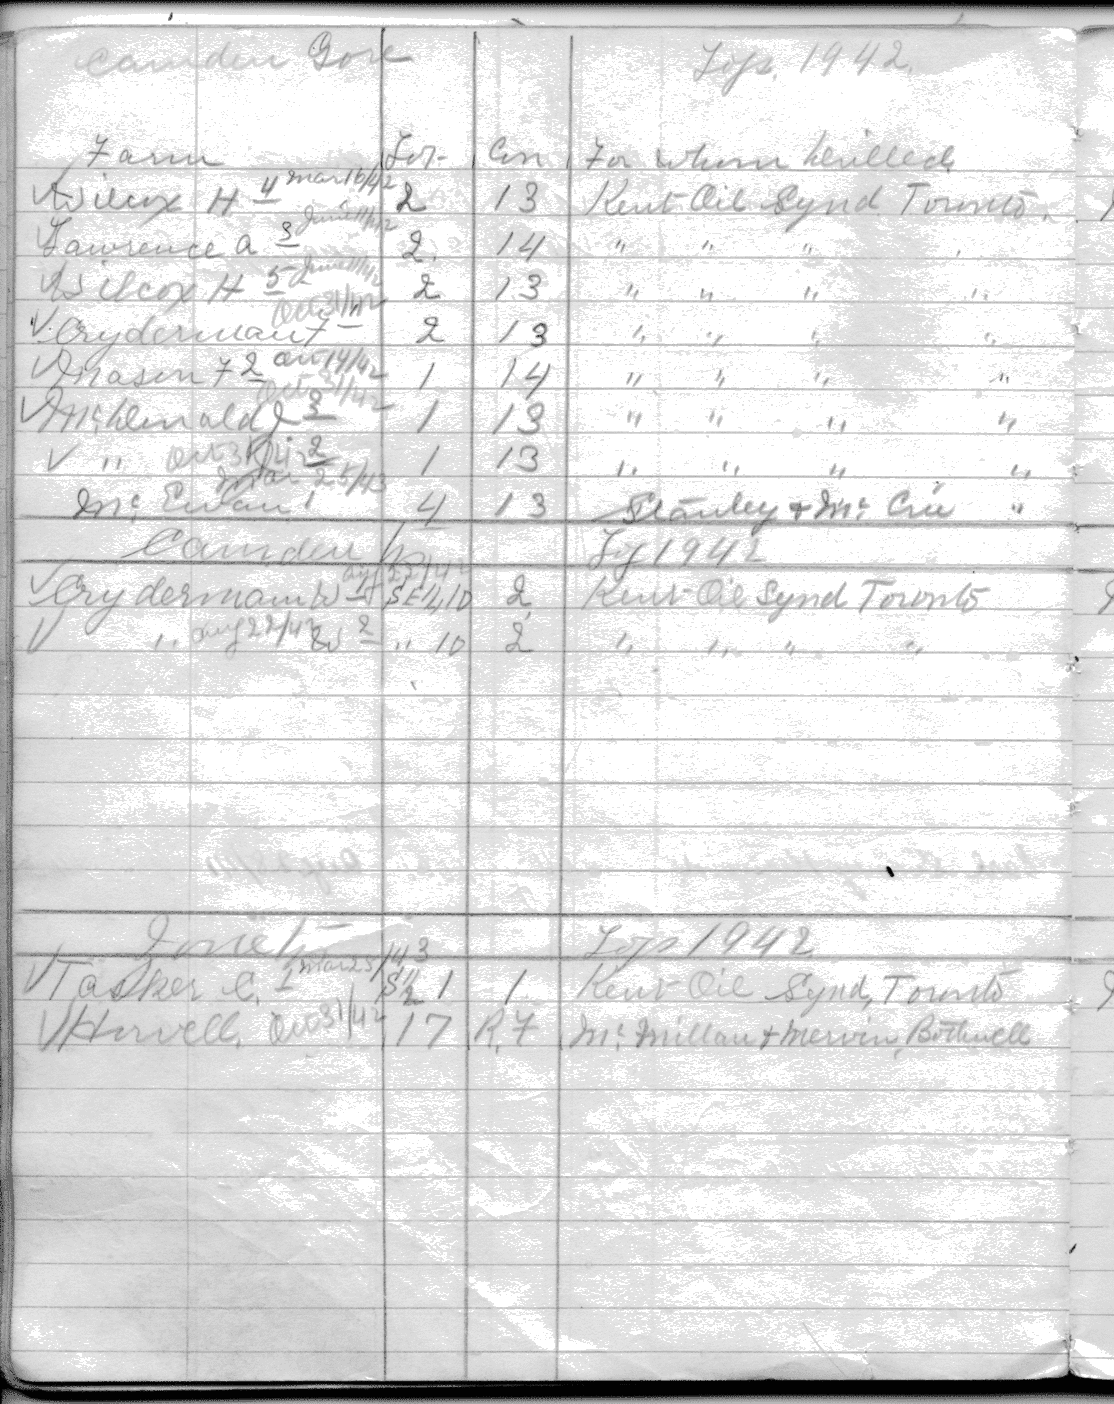 Camden Gore Logs. 1942.
Farm Lot Con For whom drilled
√ Wilcox H 4 Mar 16/42 2 13 Kent Oil Synd Toronto.
√ Lawrence A 3 June 11/42 2. 14 " " " "
√ Wilcox H 5 June 11/42 2 13 " " " "
√ Cryderman F 1 Oct 31/42 2 13 " " " "
√ Mason F 2 Oct 14/42 1 14 " " " "
√ McDonald J 3 Oct 31/42 1 13 " " " "
√ " Oct 31/42 2 1 13 " " " "
Mc Ewan 1 Mar 25/43 4 13 Stanley & Mc Crie "
Camden Log 1942
√ Cryderman W 1 Aug 22/42 SE 1/4 10 2 Kent Oil Synd Toronto
√ " Aug 22/42 W 2 " 10 2 " " " "
Zone Logs 1942
√ Tasker C. 1 Mar 25/43 S 1/2 1 1 Kent Oil Synd, Toronto
√ Horvell. Oct 31/42 17 R. 7 Mc Millan & Mervin, Bothwell